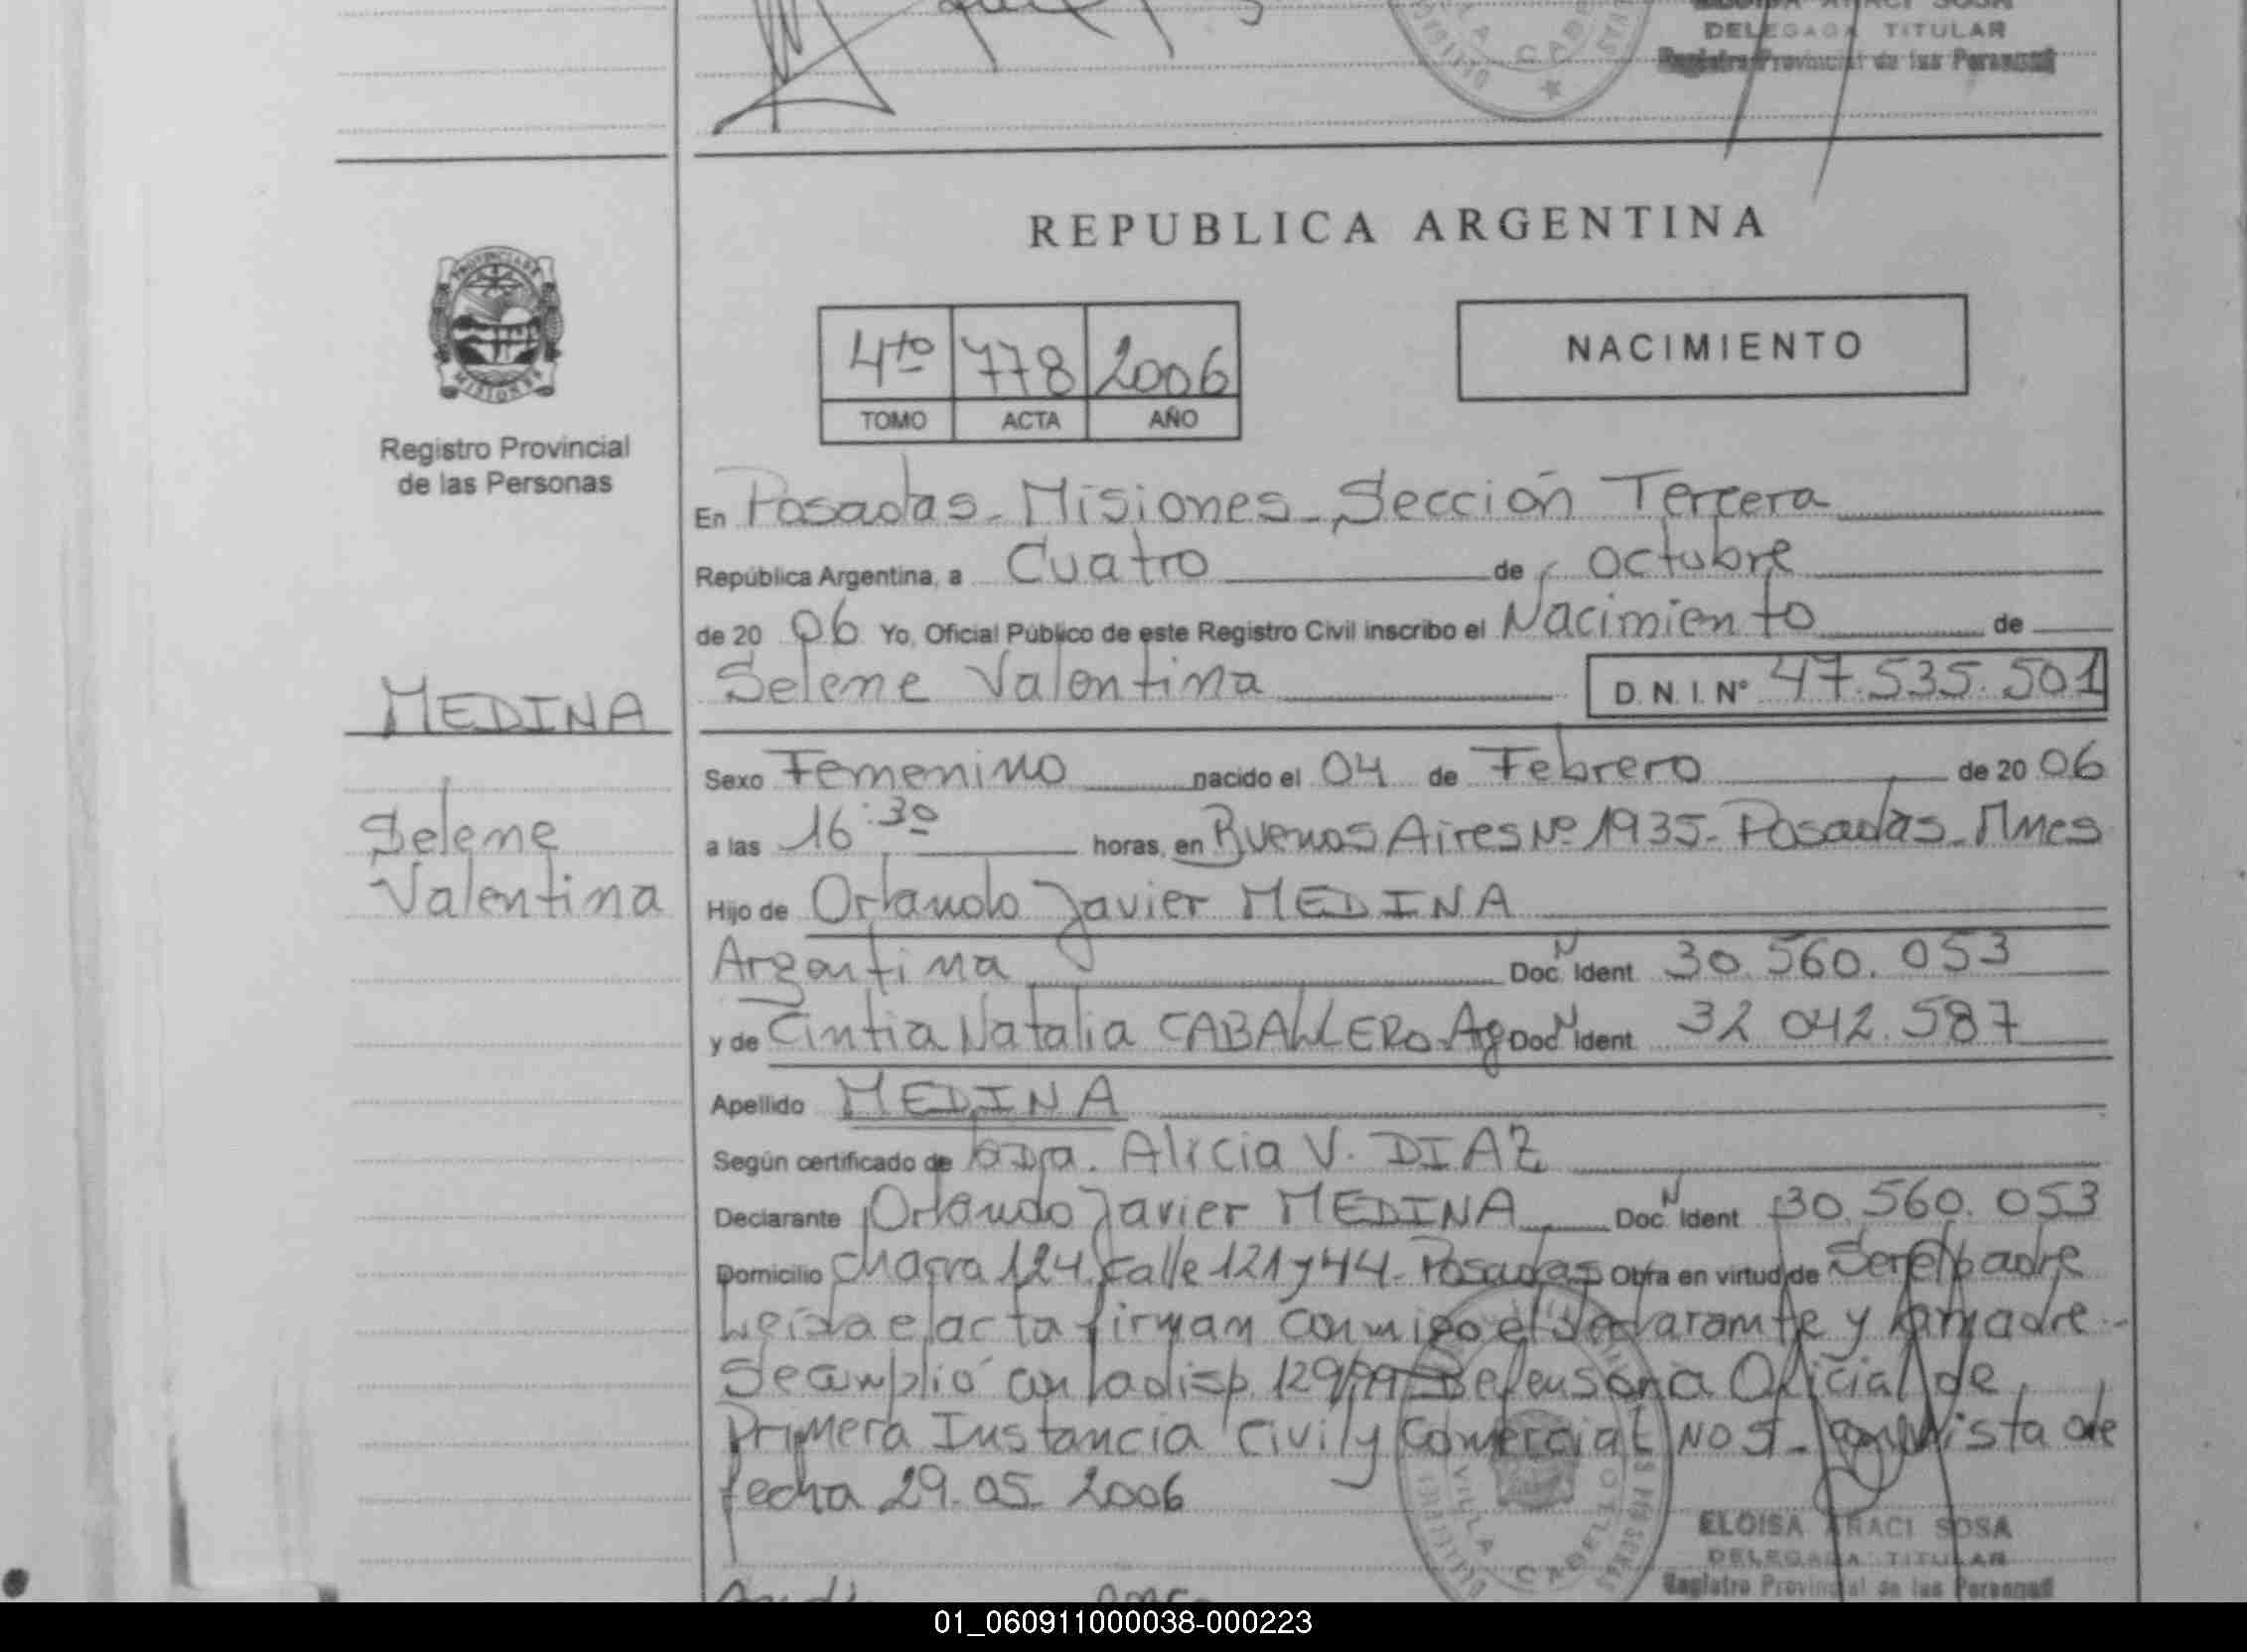 DELEGADA TITULAR
Registro Provincial de las Personas
REPUBLICA ARGENTINA
PROVINCIA DE
MISIONES
Registro Provincial
de las Personas
4to 778 2006
TOMO ACTA AÑO
NACIMIENTO
En Posadas - Misiones - Sección Tercera
República Argentina, a Cuatro de octubre
de 20 06 Yo, Oficial Público de este Registro Civil inscribo el Nacimiento de
Selene Valentina D.N.I. Nº 47.535.501
MEDINA
Selene
Valentina
Sexo Femenino nacido el 04 de Febrero de 20 06
a las 16:30 horas, en Buenos Aires Nº 1935 - Posadas - Mnes
Hijo de Orlando Javier MEDINA
Argentina Doc. Ident 30.560.053
y de Cintia Natalia CABALLERO - Ag Doc. Ident 32 042.587
Apellido MEDINA
Según certificado de Dra. Alicia V. DIAZ
Declarante Orlando Javier MEDINA Doc. Ident 30.560.053
Domicilio Chacra 124 Calle 121 y 44 - Posadas Obra en virtud de Ser el padre
Leida el acta firman conmigo el declarante y la madre -
Se cumplió con la disp. 129/99 - Defensoria Oficial de
Primera Instancia Civil y Comercial No 5 - vista de
fecha 29.05.2006
VILLA CABELLO
ELOISA ARACI SOSA
DELEGADA TITULAR
Registro Provincial de las Personas
01_060911000038-000223